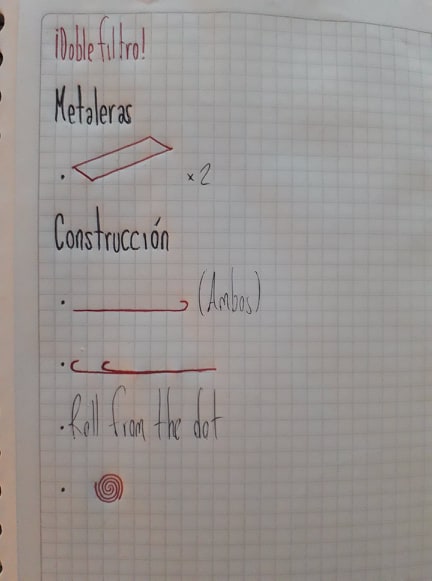 ¡Doble filtro!
Metaleras
x2
Construcción
(Ambos)
Roll from the dot